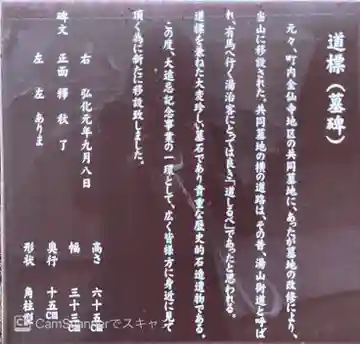 道標(墓碑)
元々、町内金仙寺地区の共同墓地に、あったが墓地の改修により、
当山に移設された。共同墓地の横の道路は、その昔、湯山街道と呼ば
れ、有馬へ行く湯治客にとっては良き「道しるべ」であったと思われる。
道標を兼ねた大変珍しい墓石であり貴重な歴史的石造遺物である。
この度、大遠忌記念事業の一環として、広く皆様方に身近に見て
頂く為に新たに移設致しました。
右 弘化元年九月八日 高さ 六十五㎝
碑文 正面 釋 秋 了 幅 三十三㎝
左 左 ありま 奥行 十五㎝
形状 角柱型
CamScannerでスキャン